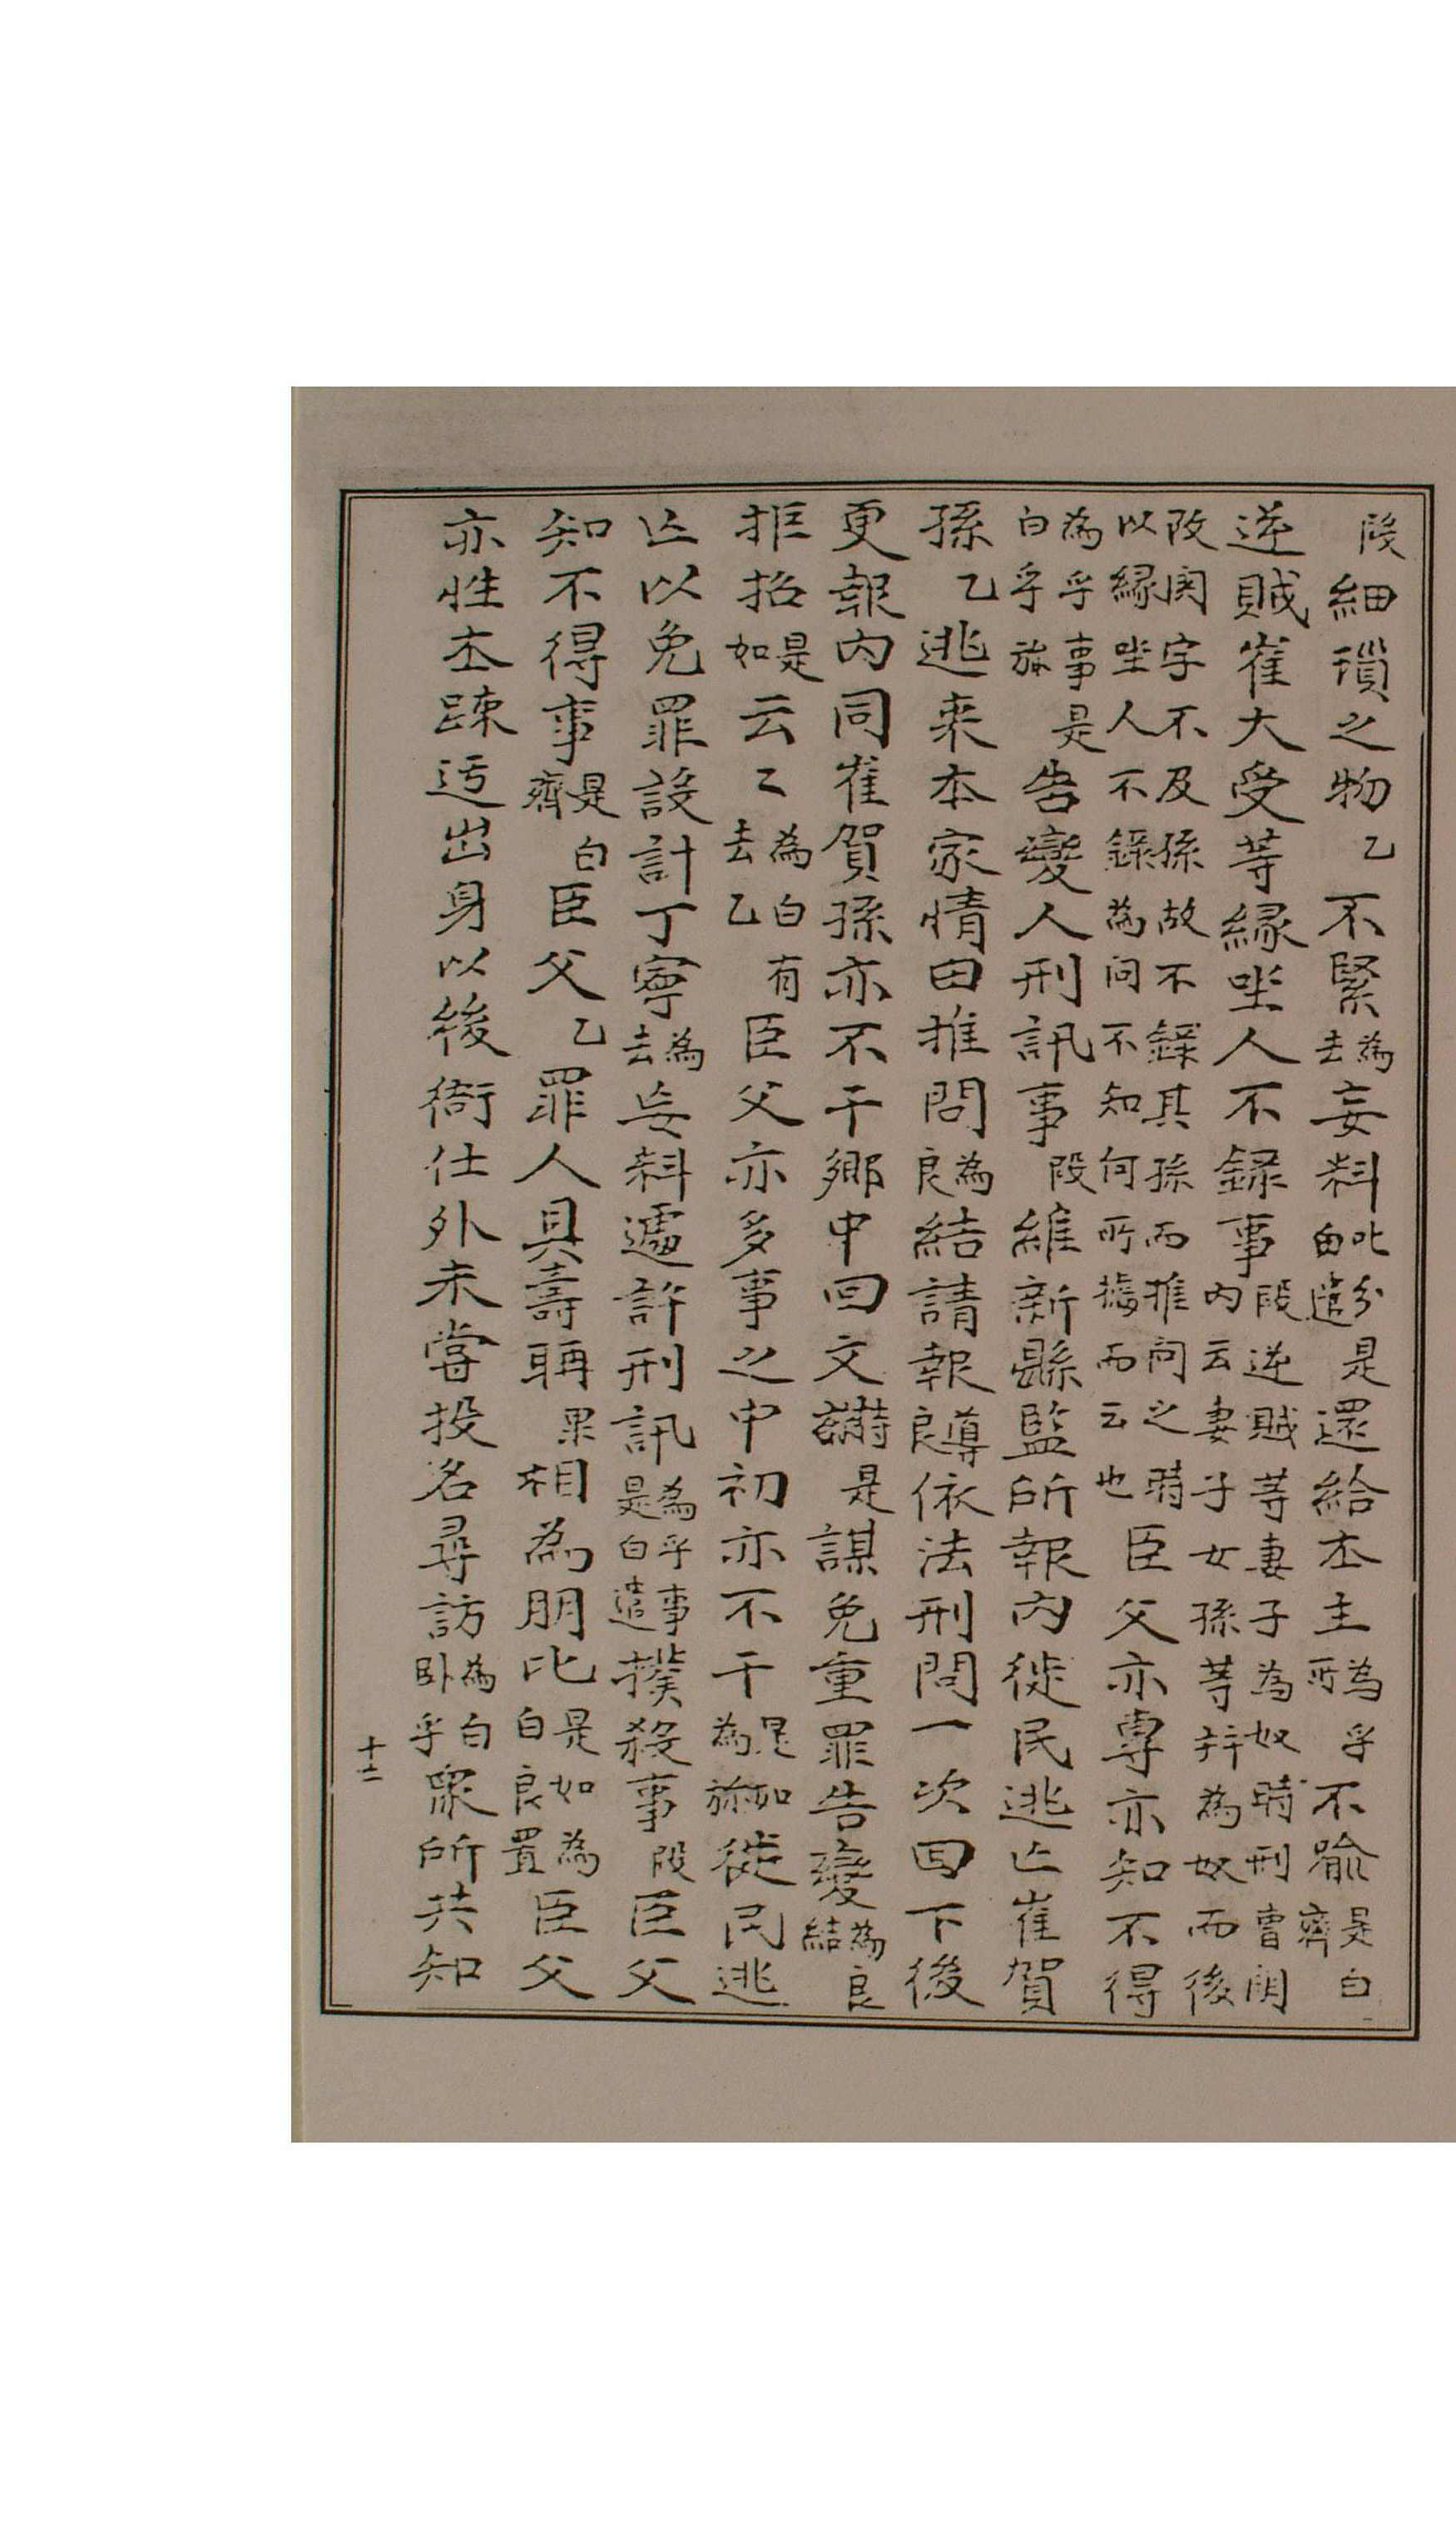 段細瑣之物乙不緊為去妄料叱分由遣是還給本主為所乎不喻是白齊
逆賊崔大受等緣坐人不錄事段逆賊等妻子為奴時刑曹關內云妻子女孫等并為奴而後
改關字不及孫故不錄其孫而推問之時以緣坐人不錄為問不知何所據而云也臣父亦專亦知不得
為乎事是白乎旀告變人刑訊事段維新縣監所報內徙民逃亡崔賀
孫乙逃來本家情由推問為良結請報導良依法刑問一次回下後
更報內同崔賀孫亦不干鄉中回文是謀免重罪告變為良結
拒招是如云乙為白有去乙臣父亦多事之中初亦不干是如為旀徙民逃
亡以免罪設計丁寧為去妄料遽許刑訊為乎事是白遣撲殺事段臣父
知不得事是白齊臣父乙罪人具壽聃果相為朋比是如為白良置臣父
亦性本踈迂出身以後衙仕外未嘗投名尋訪為白臥乎眾所共知
十二